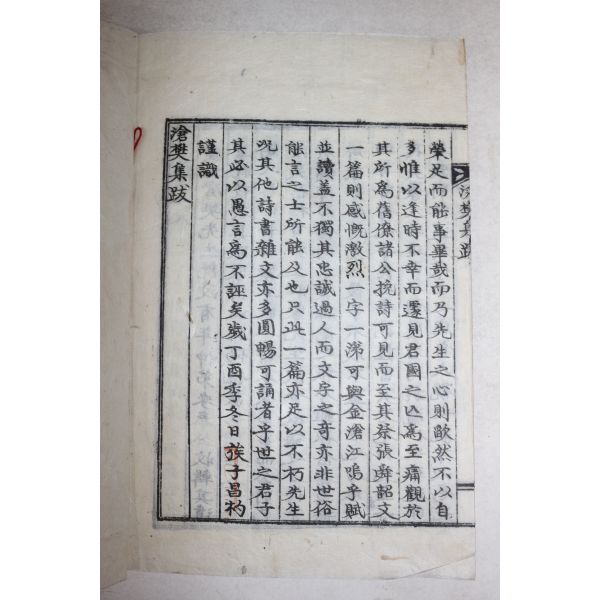 滄樊集跋
榮足而能事畢哉而乃先生之心則歉然不以自
多惟以逢時不幸而遽見君國之亡爲至痛觀於
其所爲舊僚諸公挽詩可見而至其祭張舜韶文
一篇則感慨激烈一字一涕可與金滄江嗚乎賦
並讀盖不獨其忠誠過人而文字之奇亦非世俗
能言之士所能及也只此一篇亦足以不朽先生
况其他詩書雜文亦多圓暢可誦者乎世之君子
其必以愚言爲不誣矣歲丁酉季冬日族子昌
謹識
滄樊集跋